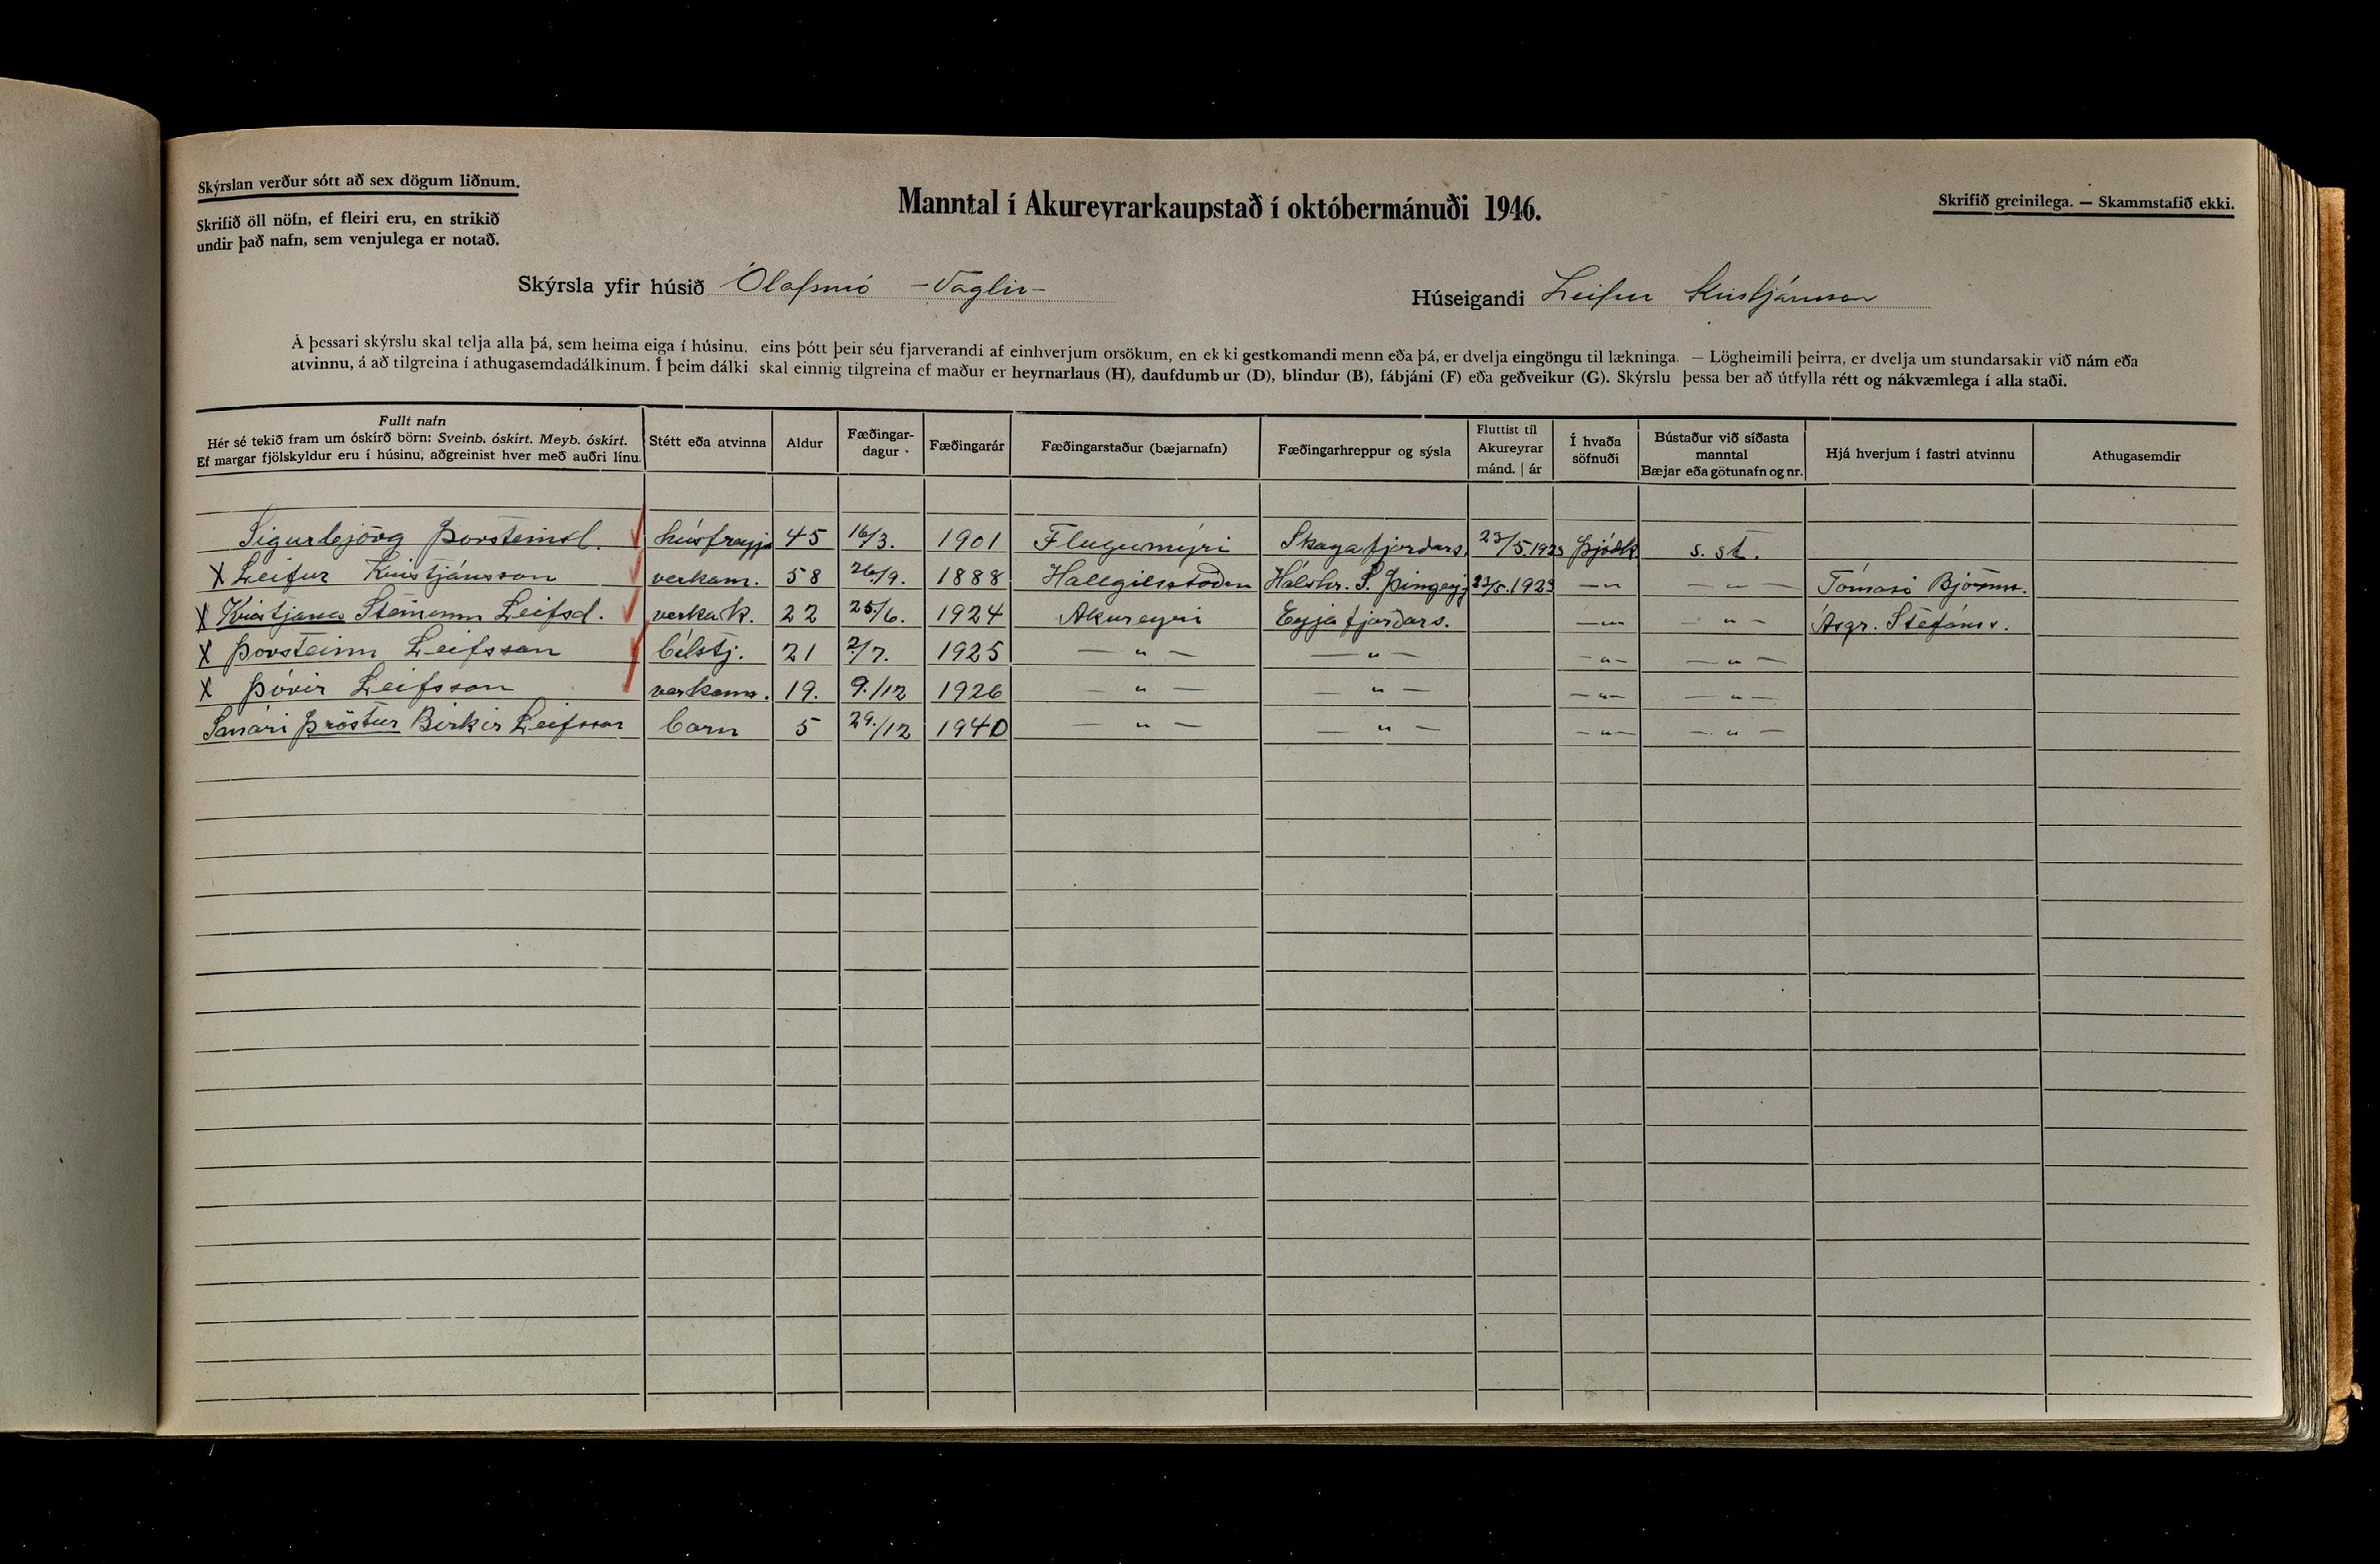 Skýrslan verður sótt að sex dögum liðnum.
Skrifið öll nöfn, ef fleiri eru, en strikið
undir það nafn, sem venjulega er notað.
Manntal í Akureyrarkaupstað í októbermánuði 1946.
Skrifið greinilega. — Skammstafið ekki.
Skýrsla yfir húsið -Vaglir-
Húseigandi Leifur Kristjánsson
Á þessari skýrslu skal telja alla þá, sem heima eiga í húsinu, eins þótt þeir séu fjarverandi af einhverjum orsökum, en ekki gestkomandi menn eða þá, er dvelja eingöngu til lækninga. — Lögheimili þeirra, er dvelja um stundarsakir við nám eða
atvinnu, á að tilgreina í athugasemdadálkinum. Í þeim dálki skal einnig tilgreina ef maður er heyrnarlaus (H), daufdumbur (D), blindur (B), fábjáni (F) eða geðveikur (G). Skýrslu þessa ber að útfylla rétt og nákvæmlega í alla staði.
Fullt nafn
Hér sé tekið fram um óskírð börn: Sveinb. óskírt. Meyb. óskírt.
Ef margar fjölskyldur eru í húsinu, aðgreinist hver með auðri línu.
Stétt eða atvinna
Aldur
Fæðingar-
dagur
Fæðingarár
Fæðingarstaður (bæjarnafn)
Fæðingarhreppur og sýsla
Fluttist til
Akureyrar
mánd. | ár
Í hvaða
söfnuði
Bústaður við síðasta
manntal
Bæjar eða götunafn og nr.
Hjá hverjum í fastri atvinnu
Athugasemdir
Sigurbjörg Þorsteinsd. húsfreyja 45 16/3. 1901 Flugumýri Skagafjarðars. 23/5.1923 Þjóðk s. st.
X Leifur Kristjánsson verkam. 58 26/9. 1888 Hallgilsstöðum Hálshr. S. Þingeyj 23/5.1923 —„— —„— Tómasi Björnss.
X Kristjana Steinunn Leifsd. verkak. 22 25./6. 1924 Akureyri Eyjafjarðars. —„— —„— Ásgr. Stefánss.
X Þorsteinn Leifsson bílstj. 21 2/7. 1925 —„— —„— —„— —„—
X Þórir Leifsson verkam. 19. 9./12 1926 —„— —„— —„— —„—
Smári Þröstur Birkir Leifsson barn 5 29./12 1940 —„— —„— —„— —„—